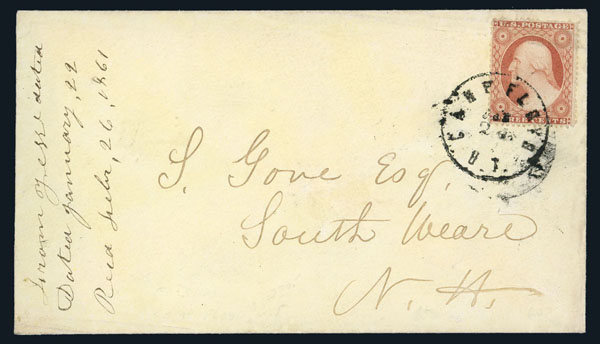 U.S. POSTAGE
THREE CENTS
CAMP FLOYD
U.T.
From Jesse dated
Dated January, 22
Recd Feb, 26, 1861
S. Gove Esq,
South Weare
N. H.